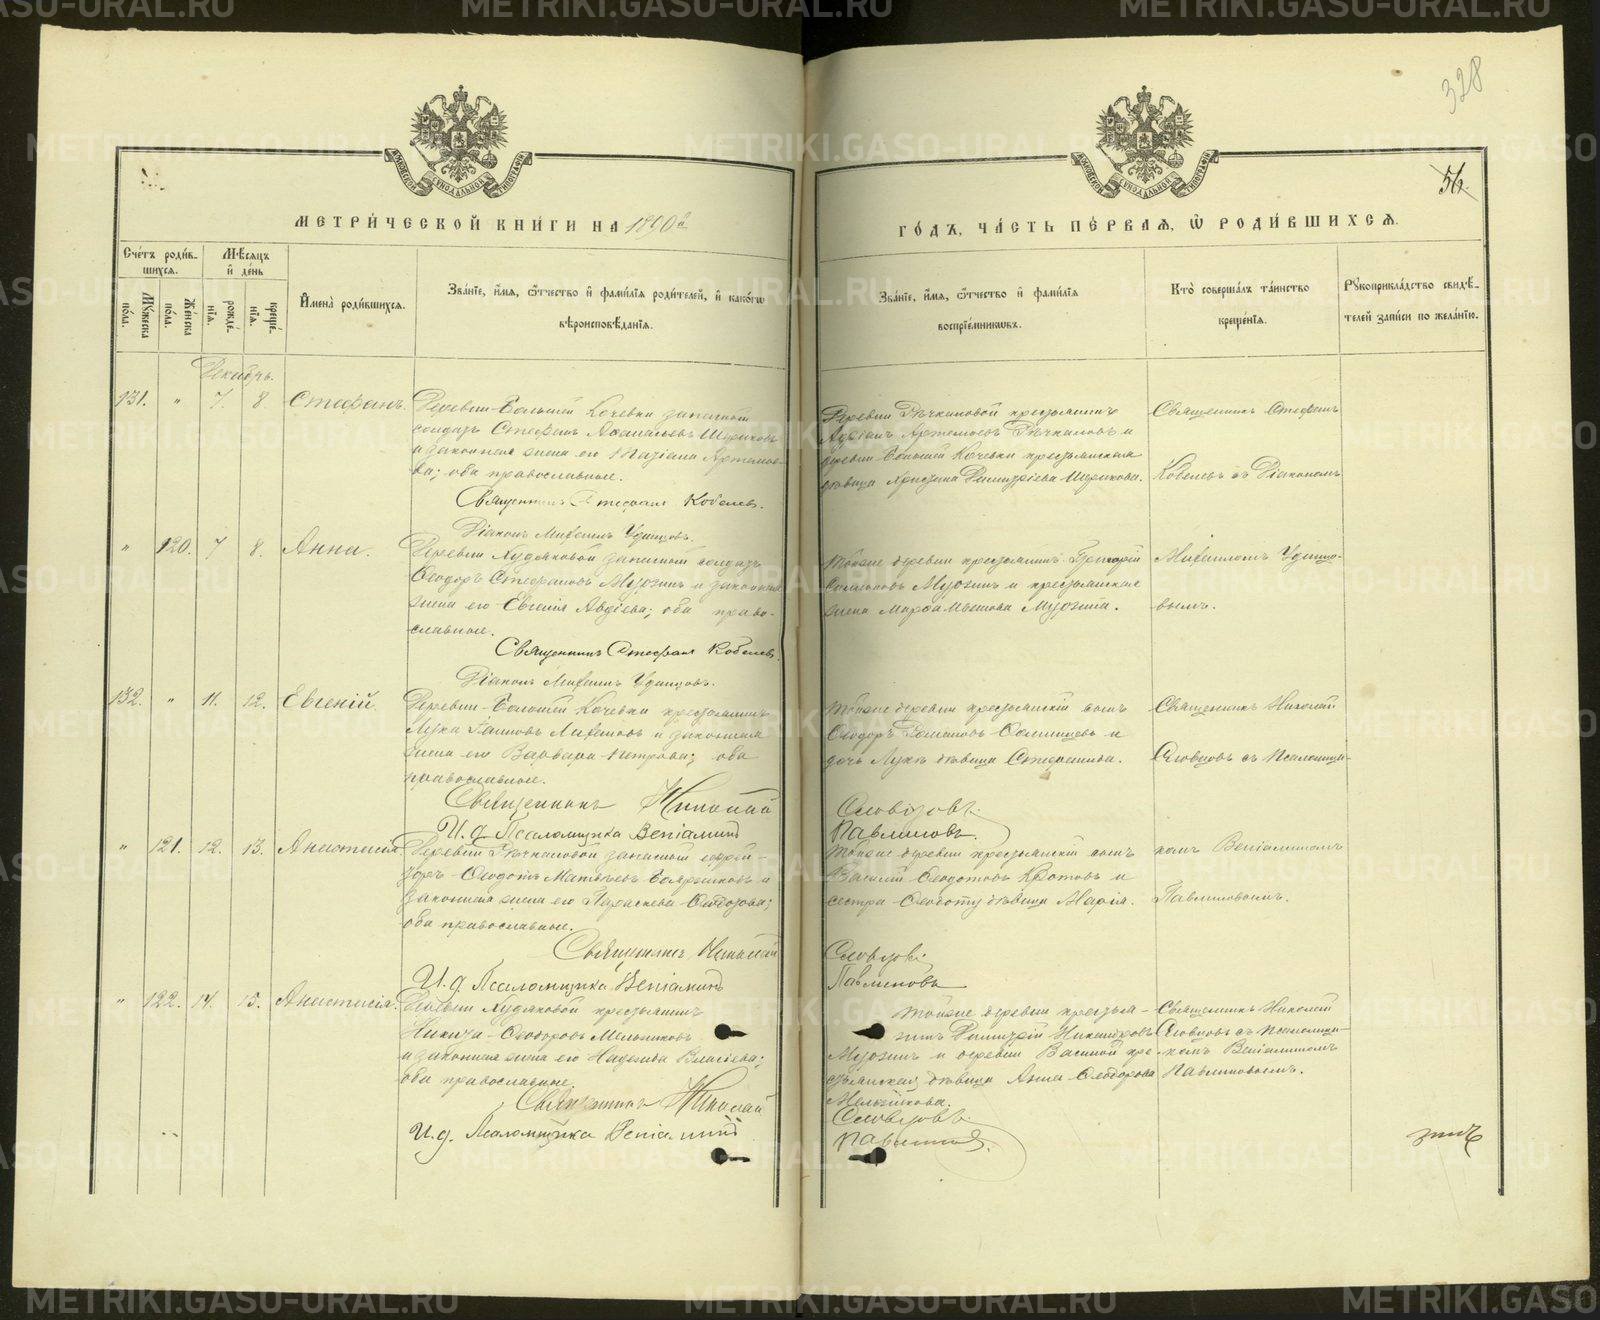 328
56.
МЕТРИ́ЧЕСКОЙ КНИ́ГИ НА 1890й
ГО́ДЪ, ЧА́СТЬ ПЕ́РВАЯ, Ѡ҆ РОДИ́ВШИХСЯ.
Сче́тъ роди́в-
шихся.
Мѣ́сяцъ
и҆ де́нь
Мꙋ́жеска по́ла.
Же́нска по́ла.
рожде́нїя.
креще́нїя.
И҆мена̀ роди́вшихся.
Зва́нїе, и҆́мя, ѻ҆́тчество и҆ фами́лїя роди́телей, и҆ како́гѡ
вѣроисповѣ́данїя.
Зва́нїе, и҆́мя, ѻ҆́тчество и҆ фами́лїя
воспрїе́мникѡвъ.
Кто̀ соверша́лъ та́инство
креще́нїя.
Рꙋкоприкла́дство свидѣ́-
телей за́писи по жела́нїю.
Декабрь.
131. " 7. 8. Стефанъ.
Деревни Большей Кочевки запасный
солдатъ Стефанъ Шориковъ
и законная жена его Татіана Артемье-
ва; оба православные.
Священникъ Стефанъ Кобелевъ.
Діаконъ Михаилъ Удинцовъ.
Деревни Рѣчкаловой крестьянинъ
Артемьевъ Рѣчкаловъ и
деревни Большей Кочевки крестьянская
дѣвица Христина Димитріева Шорикова.
Священникъ Стефанъ
Кобелевъ съ Діакономъ
" 120. 7 8. Анна.
Деревни Худяковой запасный солдатъ
Ѳеодоръ Стефановъ и законная
жена его Евгенія Авдіева; оба право-
славные.
Священникъ Стефанъ Кобелевъ.
Діаконъ Михаилъ Удинцовъ.
Тойже деревни крестьянинъ Григорій
и крестьянская
жена Марѳа
Михаиломъ Удинцо-
вымъ.
132. " 11. 12. Евгеній.
Деревни Большей Кочевки крестьянинъ
Лука и законная
жена его Варвара Петрова; оба
православные.
Священникъ Николай
И. д. Псаломщика Веніаминъ
Тойже деревни крестьянскій сынъ
Ѳеодоръ Романовъ и
дочь Луки дѣвица Стефанида.
Словцовъ.
Павлиновъ.
Священникъ Николай
Словцовъ съ Псаломщи-
" 121. 12. 13. Анастасія
Деревни Рѣчкаловой запасный ефрей-
торъ Ѳеодотъ Матвѣевъ и
законная жена его Параскева Ѳеодотова;
оба православные.
Священникъ Николай
И. д. Псаломщика Веніаминъ
Тойже деревни крестьянскій сынъ
Василій Ѳеодотовъ Кротовъ и
сестра Ѳеодоту дѣвица Марія.
Словцовъ
Павлиновъ
комъ Веніаминомъ
Павлиновымъ.
" 122. 14. 15. Анастасія.
Деревни Худяковой крестьянинъ
Никита Ѳеодоровъ Мельниковъ
и законная жена его Надежда Власіева;
оба православные.
Священникъ Николай
И. д. Псаломщика Веніаминъ
Тойже деревни крестья-
нинъ Димитрій
и деревни Васиной кре-
стьянская дѣвица Анна Ѳеодорова
Мельникова.
Словцовъ.
Павлиновъ.
Священникъ Николай
Словцовъ съ Псаломщи-
комъ Веніаминомъ
Павлиновымъ.
METRIKI.GASO-URAL.RU